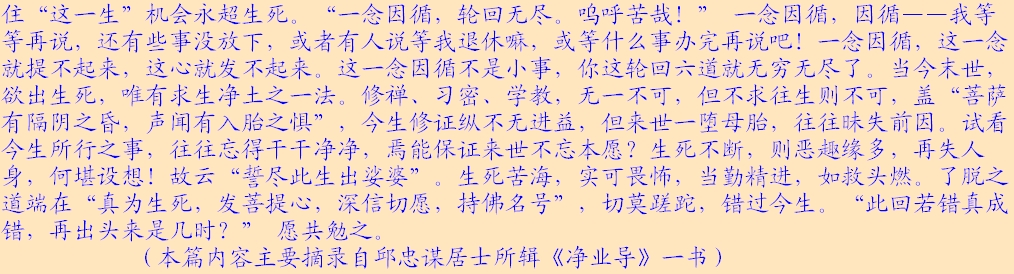 住“这一生”机会永超生死。“一念因循，轮回无尽。呜呼苦哉！” 一念因循，因循——我等
等再说，还有些事没放下，或者有人说等我退休嘛，或等什么事办完再说吧！一念因循，这一念
就提不起来，这心就发不起来。这一念因循不是小事，你这轮回六道就无穷无尽了。当今末世，
欲出生死，唯有求生净土之一法。修禅、习密、学教，无一不可，但不求往生则不可，盖“菩萨
有隔阴之昏，声闻有入胎之惧”，今生修证纵不无进益，但来世一堕母胎，往往昧失前因。试看
今生所行之事，往往忘得干干净净，焉能保证来世不忘本愿？生死不断，则恶趣缘多，再失人
身，何堪设想！故云“誓尽此生出娑婆”。生死苦海，实可畏怖，当勤精进，如救头燃。了脱之
道端在“真为生死，发菩提心，深信切愿，持佛名号”，切莫蹉跎，错过今生。“此回若错真成
错，再出头来是几时？” 愿共勉之。
（本篇内容主要摘录自邱忠谋居士所辑《净业导》一书）